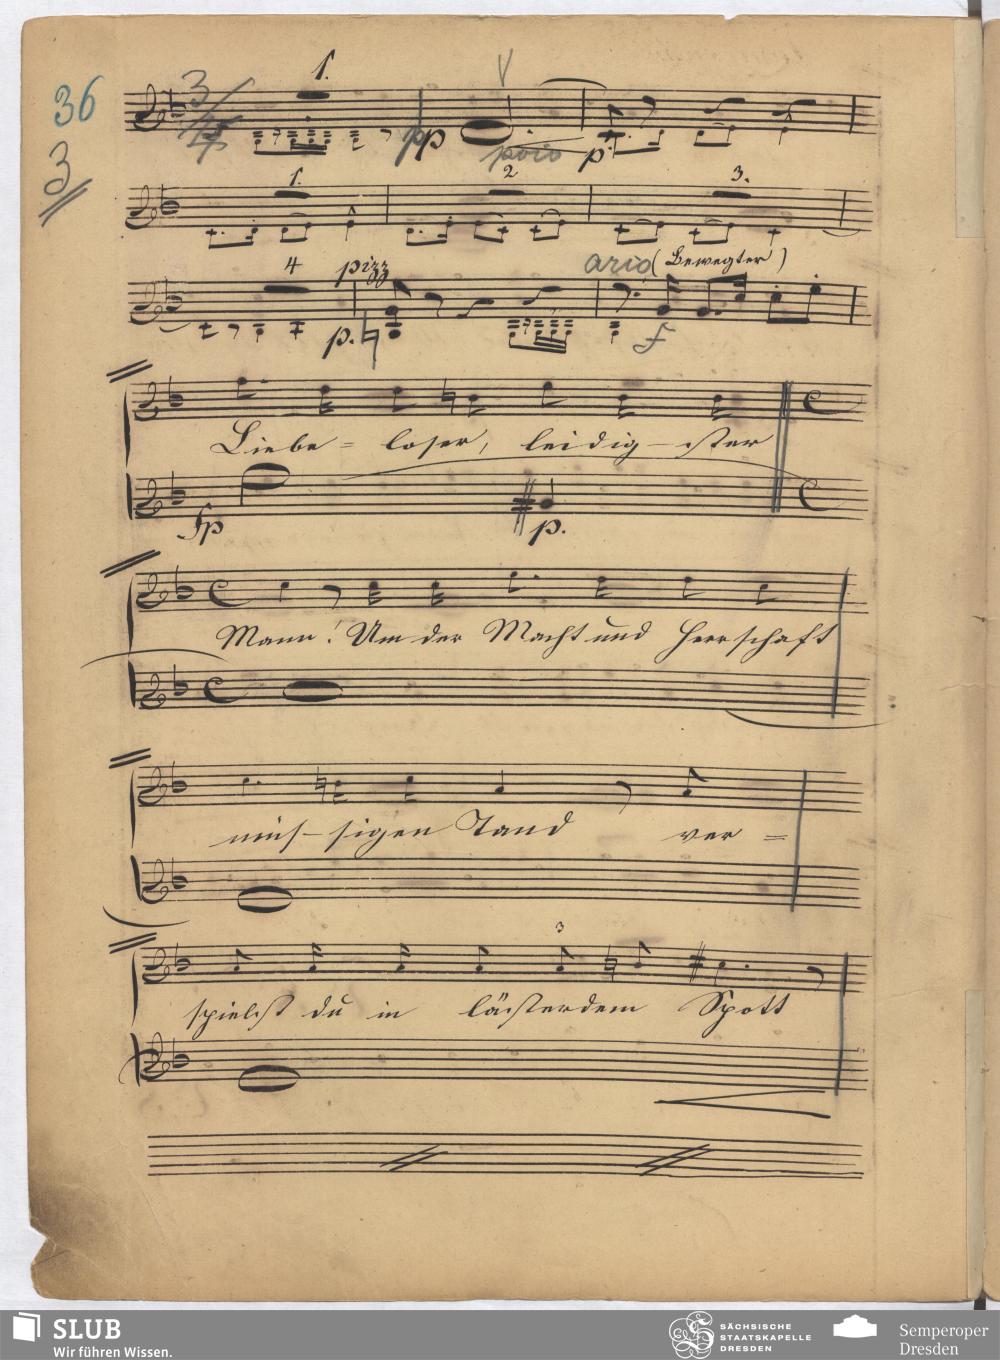 36
3/4
1.
V
pp
p.
3
1.
2
3.
4
pizz
p.
arco (Bewegter)
f
Liebe = loser, leidig-ster
fp
p.
Mann! Um der Macht und Herrschaft
müs-sigen Tand ver =
3
spielst du in lästerdem Spott
SLUB
Wir führen Wissen.
SÄCHSISCHE
STAATSKAPELLE
DRESDEN
Semperoper
Dresden